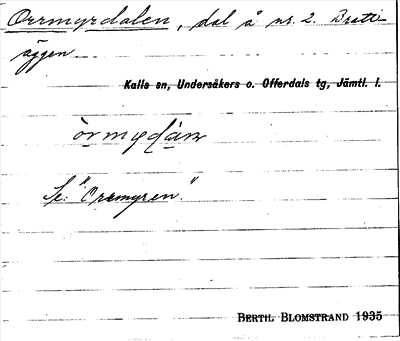 Orrmyrdalen, dal å nr. 2. Bratt-
äggen
Kalls sn, Undersåkers o. Offerdals tg, Jämtl. l.
Se: "Orrmyren."
BERTIL BLOMSTRAND 1935